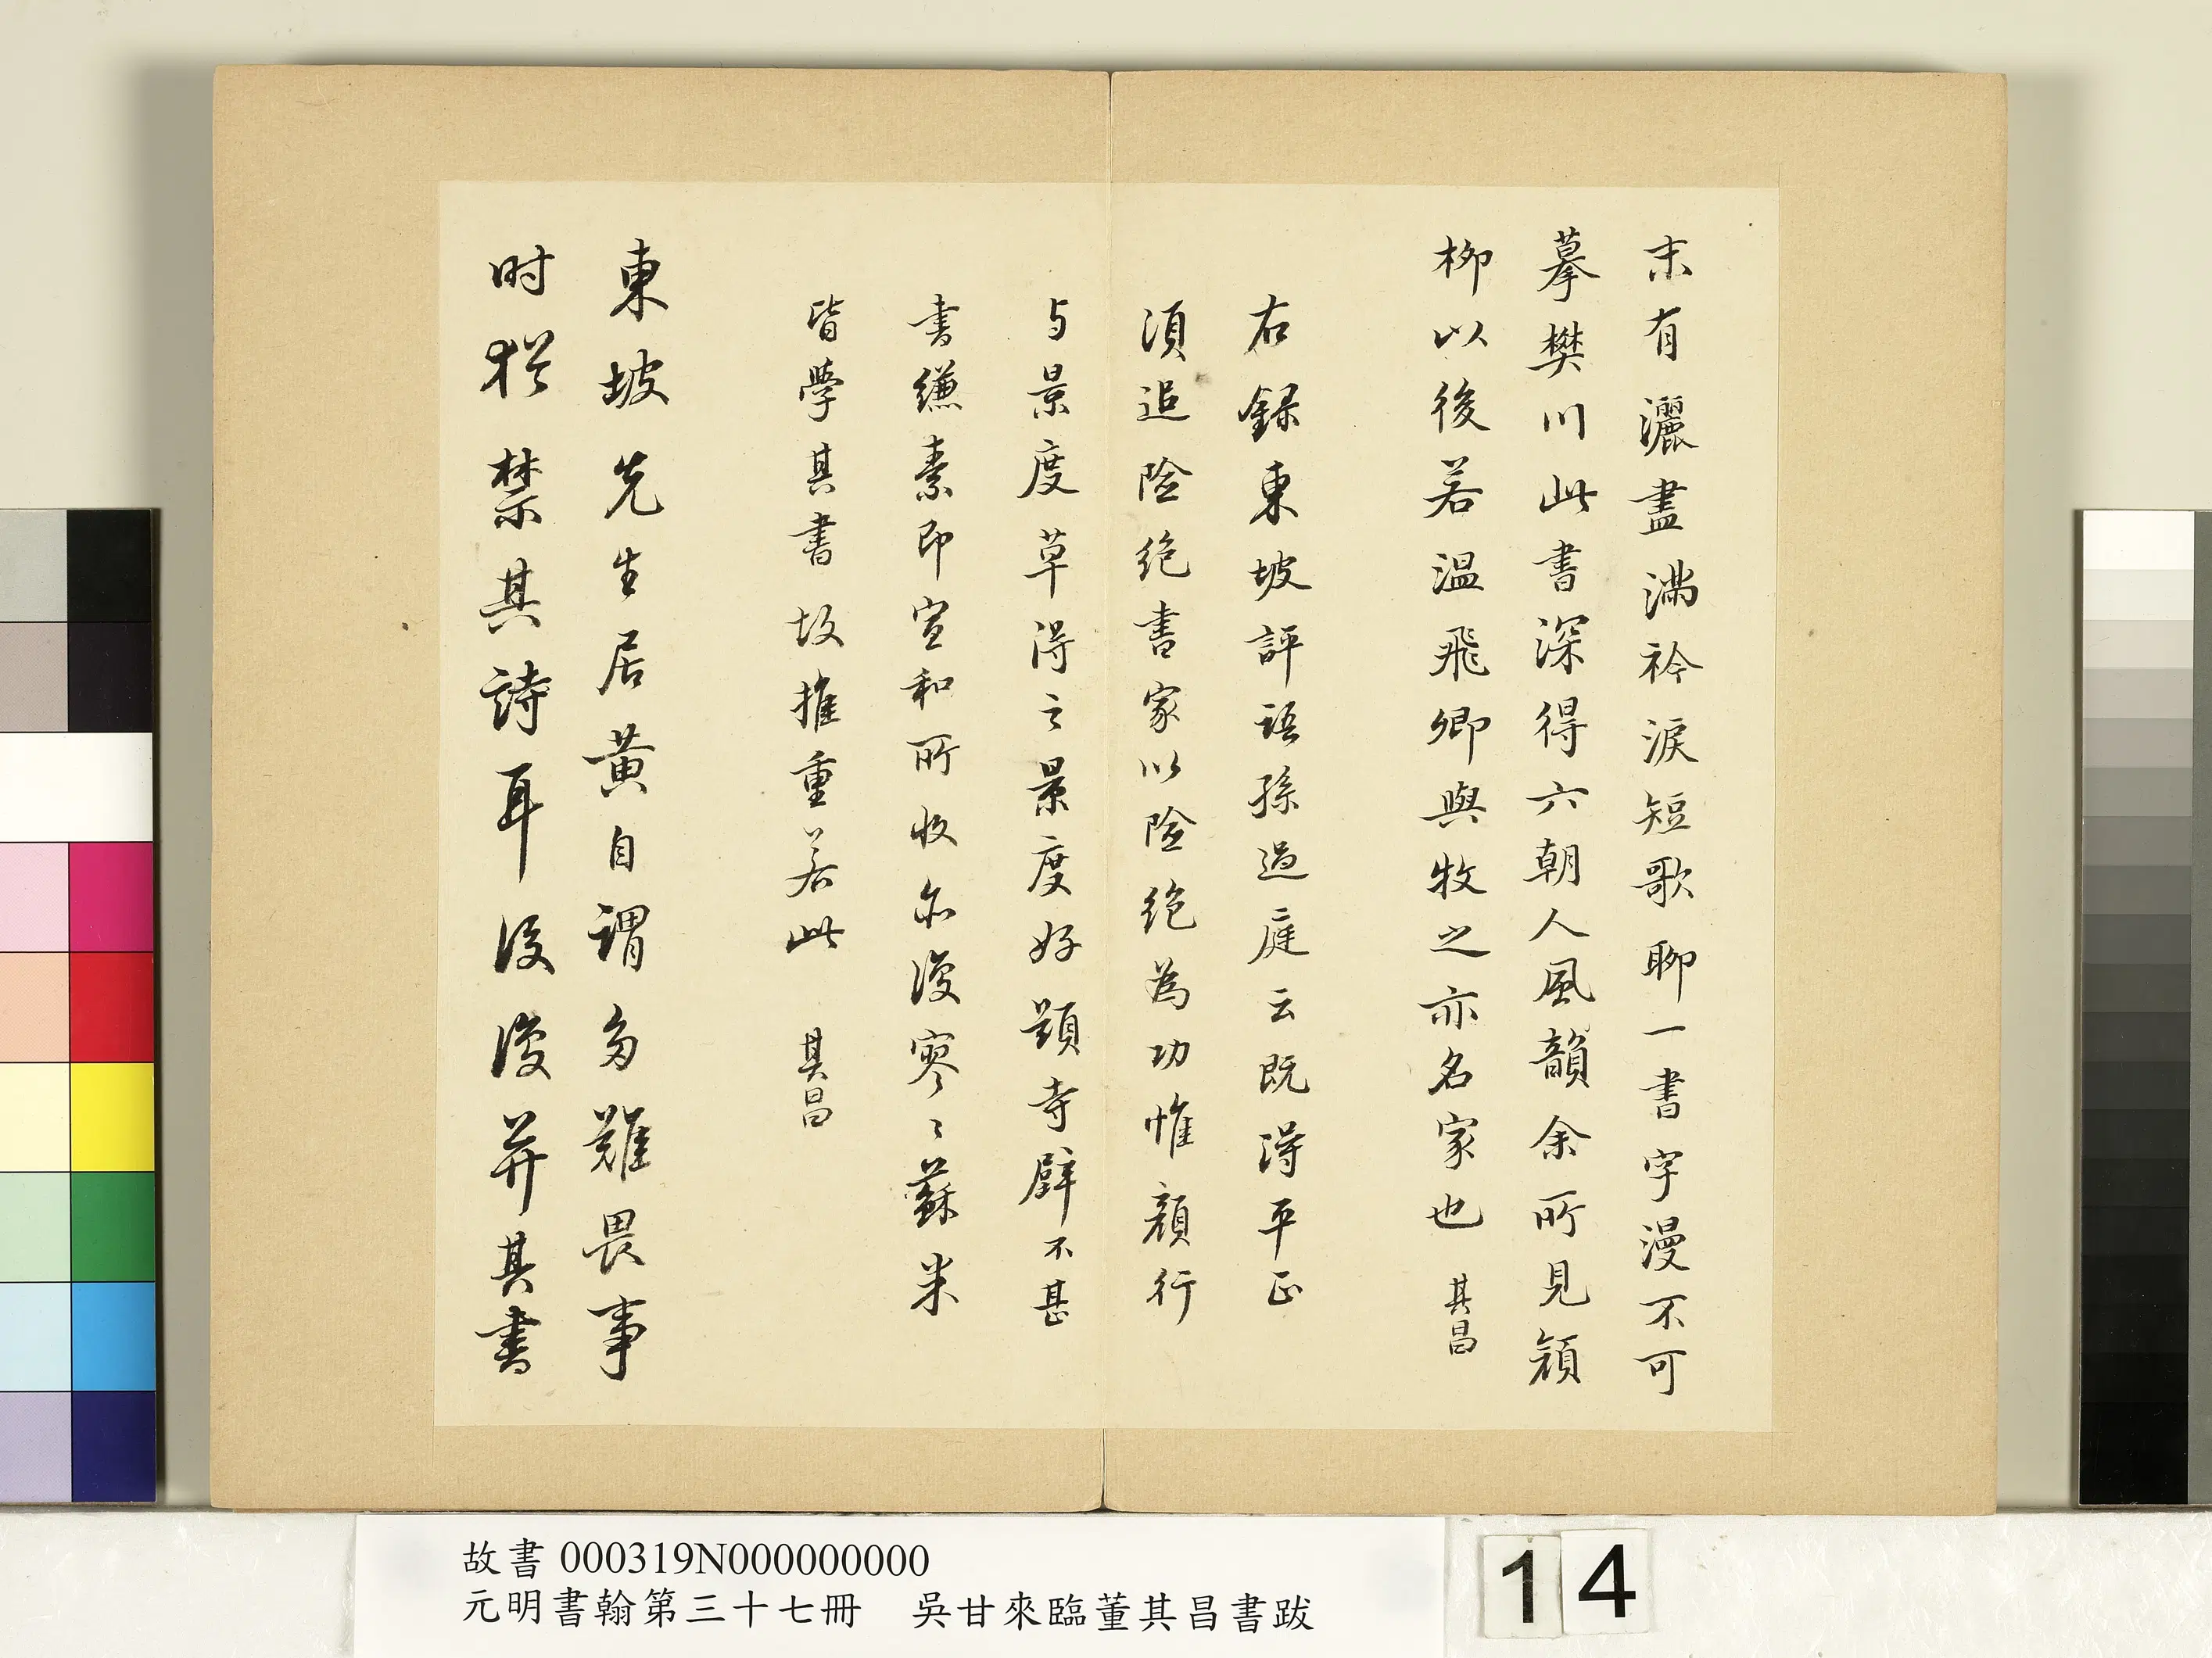 末有灑盡滿衿淚短歌聊一書字漫不可
摹樊川此書深得六朝人風韻余所見顏
柳以後若溫飛卿與牧之亦名家也 其昌
右錄東坡評語孫過庭云既得平正
須追險絕書家以險絕為功惟顏行
与景度草得之景度好題寺壁不甚
書縑素即宣和所收亦復寥〻蘇米
皆學其書故推重若此 其昌
東坡先生居黃自謂多難畏事
时猶禁其詩耳後復并其書
故書 000319N000000000
元明書翰第三十七冊 吳甘來臨董其昌書跋
14